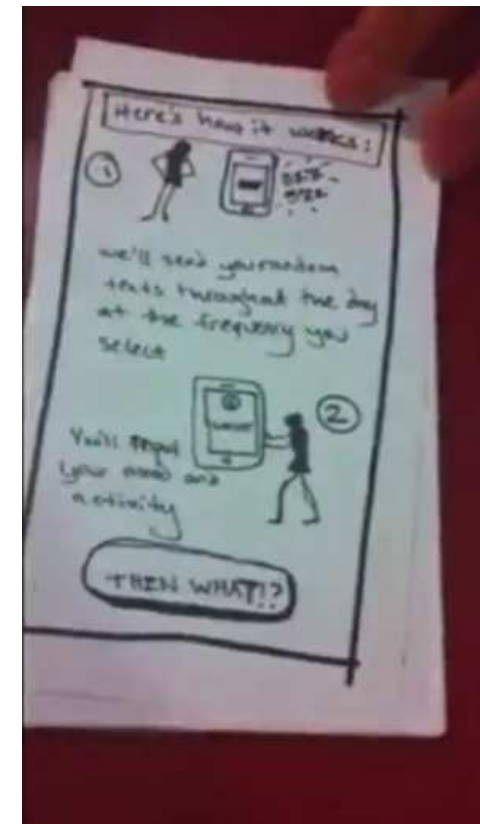 Here's how it works:
1
BZZ
BZZ
we'll send you random
texts throughout the day
at the frequency you
select
2
You'll input
your mood and
activity
THEN WHAT!?